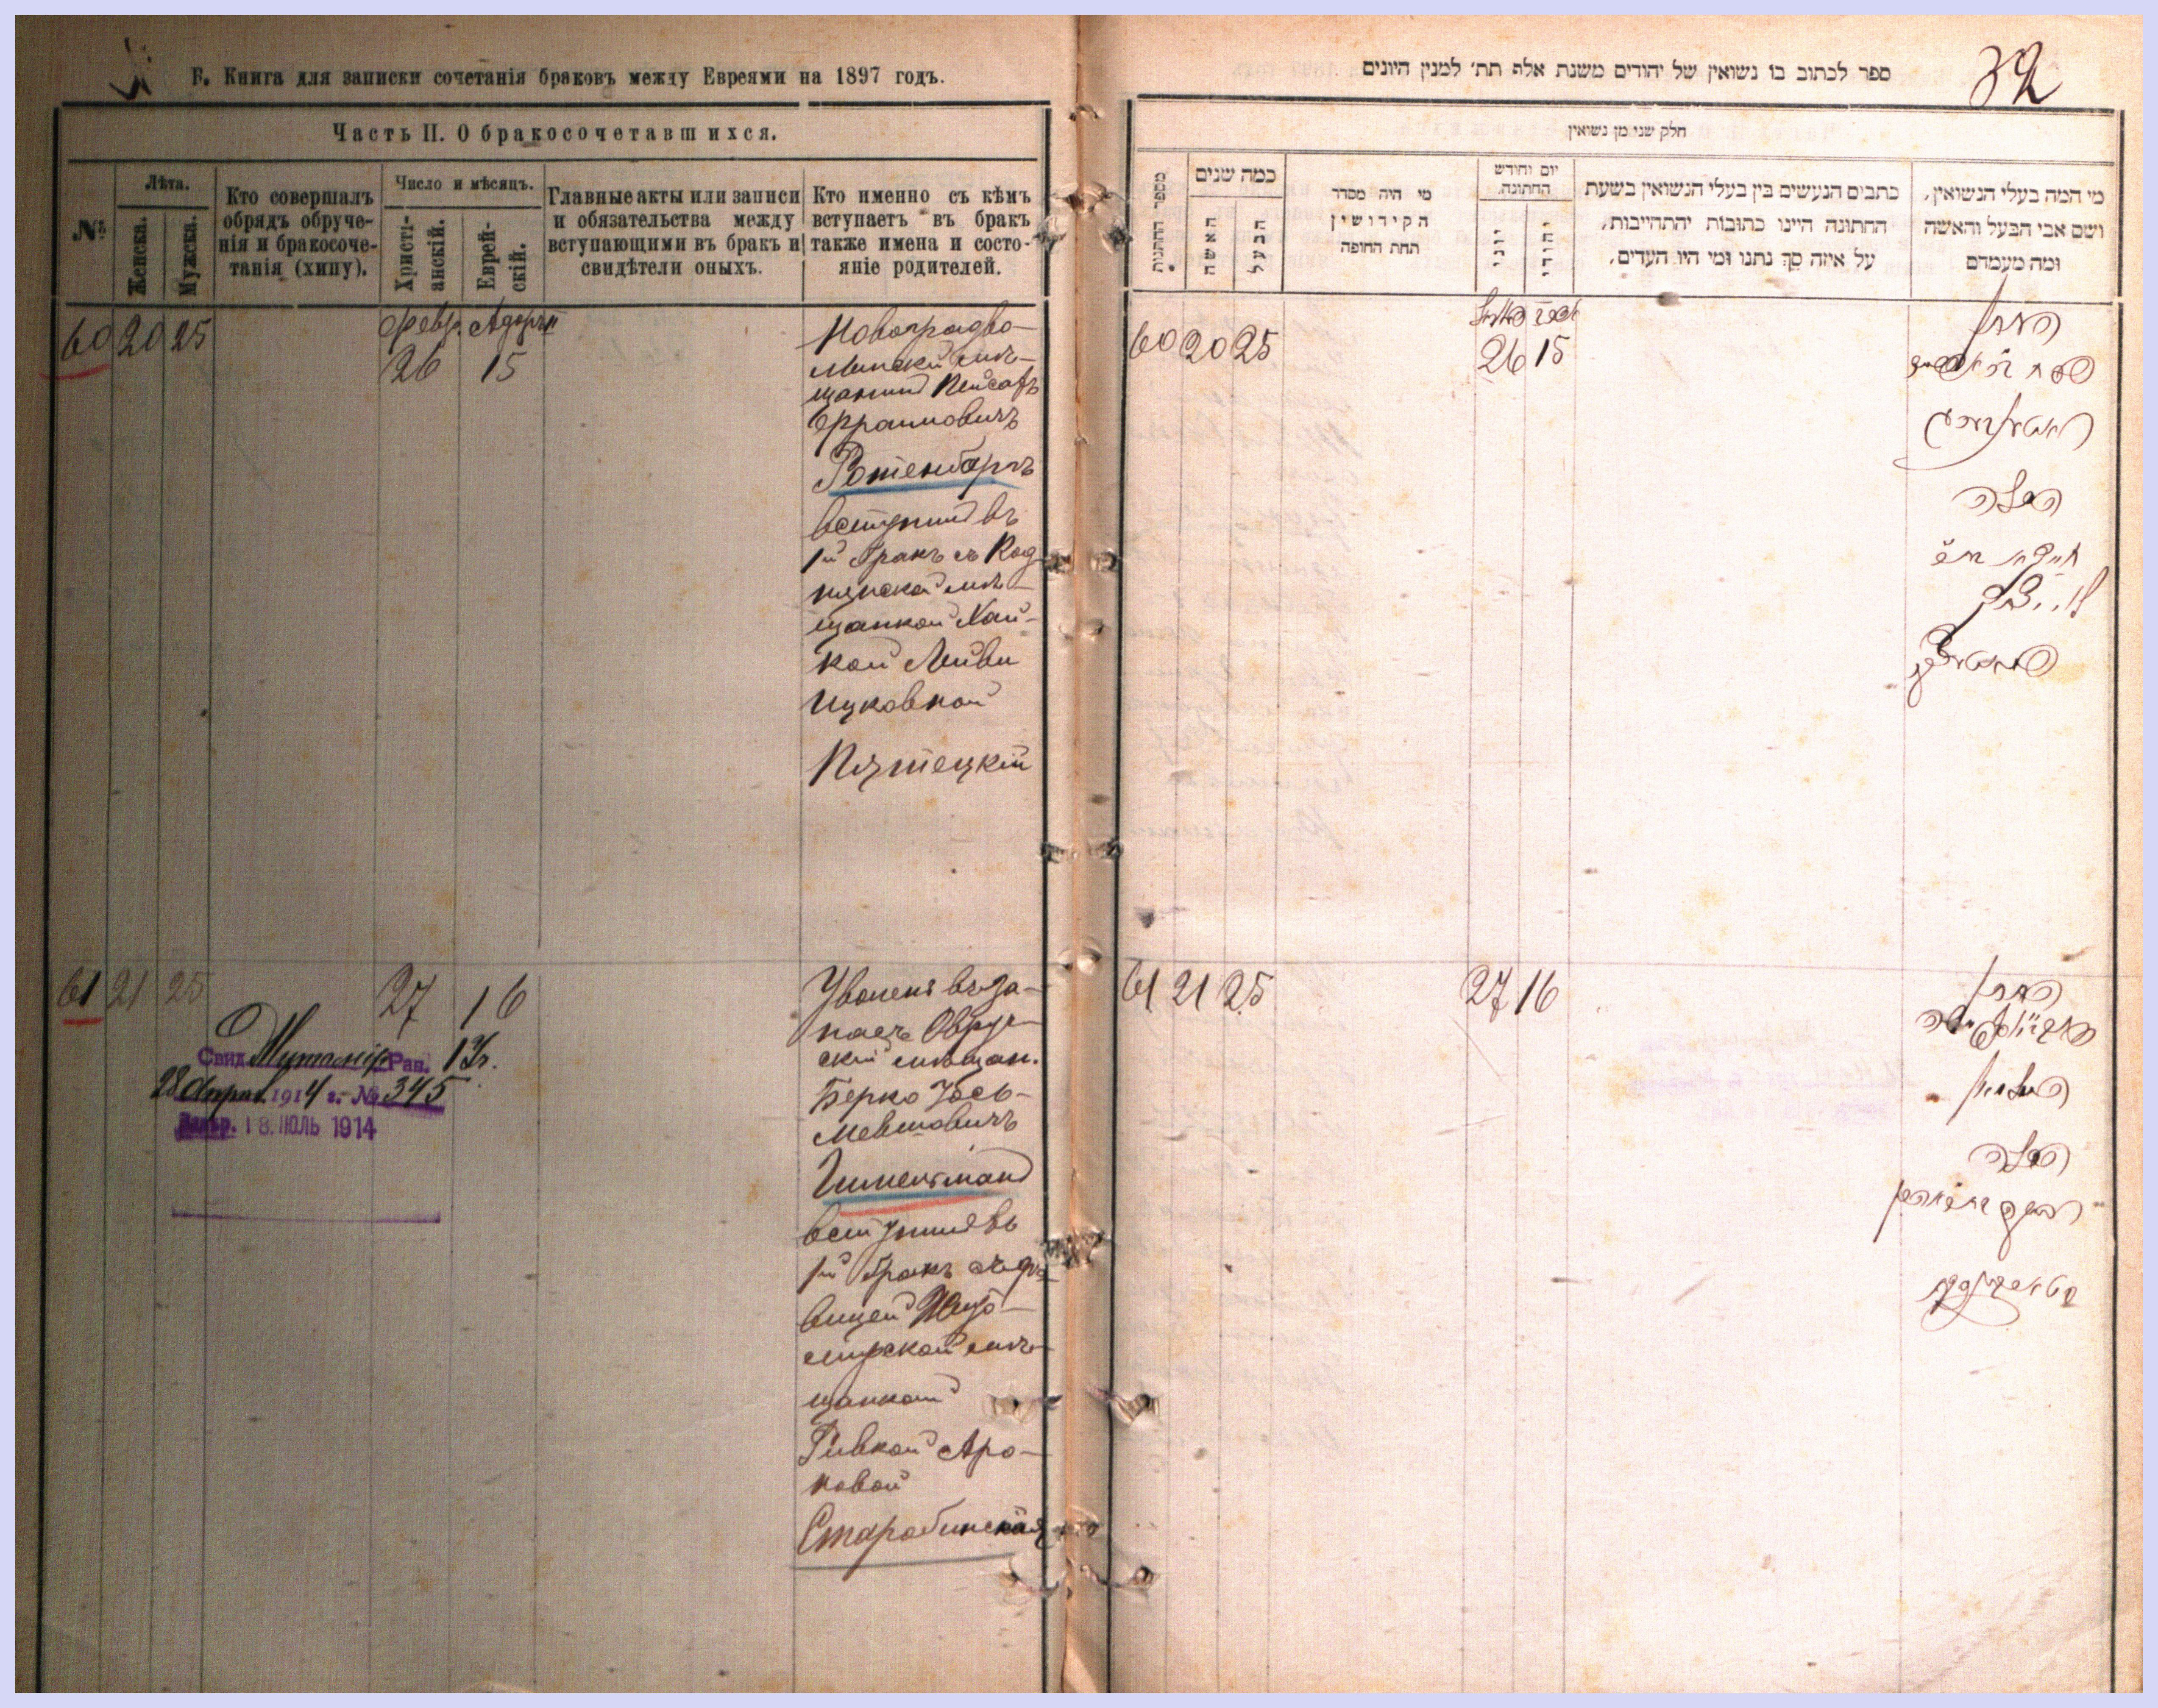 Б. Книга для записки сочетанія браковъ между Евреями на 1897 годъ.
Часть II. О бракосочетавшихся.
№
Лѣта.
Женска.
Мужска.
Кто совершалъ
обрядъ обруче-
нія и бракосоче-
танія (хипу).
Число и мѣсяцъ.
Христі-
анскій.
Еврей-
скій.
Главные акты или записи
и обязательства между
вступающими въ бракъ и
свидѣтели оныхъ.
Кто именно съ кѣмъ
вступаетъ въ бракъ
также имена и состо-
яніе родителей.
60 20 25
Февр. Адоръ II
26 15
Новоградво-
лынскій мѣ-
щанинъ Пейсахъ
Ефраимовичъ
Ротенбергъ
вступилъ въ
1й бракъ съ
мѣ-
щанкой Хай-
кой Лейви
Ицковной
Пятецкій
61 21 25
27 16
Свид. Рав.
28 Апрел 1914 г. № 345
18. ІЮЛЬ 1914
Уволенъ въ за-
пасъ Овруч-
скій мѣщан.
Берко Іось-
Мевшовичъ
Цимерманъ
вступилъ въ
1й бракъ съ дѣ-
вицей Жито-
мирской мѣ-
щанкой
Ривкой Аро-
новой
Старобинская
ספר לכתוב בו נשואין של יהודים משנת אלף תת׳ למנין היונים
32
חלק שני מן נשואין
מספר החתונות
כמה שנים
האשה
הבעל
מי היה מסדר
הקידושין
תחת החופה
יום וחודש
החתונה.
יוני
יהודי
כתבים הנעשים בין בעלי הנשואין בשעת
החתונה היינו כתובות יהתחייבות,
על איזה סך נתנו ומי היו העדים,
מי המה בעלי הנשואין,
ושם אבי הבעל והאשה
ומה מעמדם
60 20 25
26 15
החתן
פסח
ראטענבערג
הכלה
61 21 25
27 16
החתן
הכלה